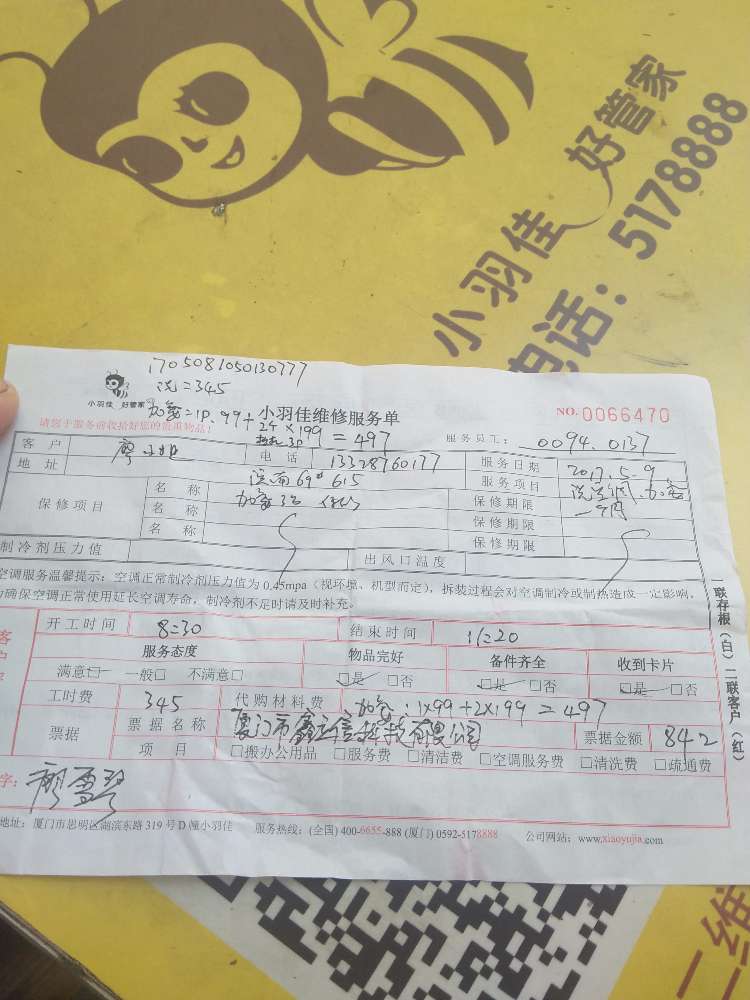 小羽佳 好管家
电话：5178888
1705081050130777
洗=345
小羽佳 好管家
加氨=1P.99+2个×199=497
小羽佳维修服务单
NO.0066470
请您于服务前收拾好您的贵重物品！
服务员工：0094.0137
客户 廖小姐 电话 13328760177 服务日期 2017.5.9
地址 69# 615 服务项目
保修项目 名称 保修期限 一个月
名称 保修期限
名称 保修期限
制冷剂压力值 出风口温度
空调服务温馨提示：空调正常制冷剂压力值为0.45mpa（视环境、机型而定），拆装过程会对空调制冷或制热造成一定影响，
为确保空调正常使用延长空调寿命，制冷剂不足时请及时补充。
开工时间 8=30 结束时间 11=20
服务态度 物品完好 备件齐全 收到卡片
满意□ 一般□ 不满意□ □是 □否 □是 □否 □是 □否
工时费 345 代购材料费 1×99+2×199=497
票据 票据名称 厦门市鑫 科技有限公司 票据金额 842
项目 □搬办公用品 □服务费 □清洁费 □空调服务费 □清洗费 □疏通费
字：廖雪琴
地址：厦门市思明区湖滨东路319号D幢小羽佳 服务热线：(全国) 400-6655-888 (厦门) 0592-5178888 公司网站：www.xiaoyujia.com
一联存根（白）二联客户（红）
二维